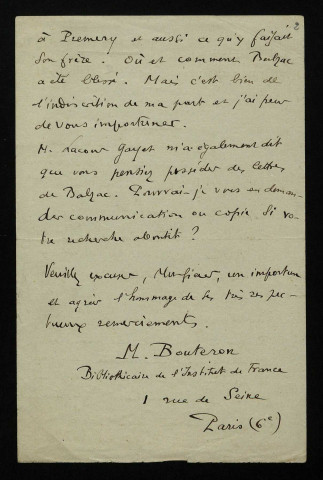 2
à Premery et aussi ce qu'y faisait
son frère. Où et comment Balzac
a été blessé. Mais c'est bien de
l'indiscrétion de ma part et j'ai peur
de vous importuner.
M. Lacour Gayet m'a également dit
que vous pensiez posséder des lettres
de Balzac. Pourrai-je vous en deman-
der communication ou copie si vo-
tre recherche aboutit ?
Veuillez excuser, Monsieur, un importun
et agréer l'hommage de ses très respec-
tueux remerciements.
M. Bouteron
Bibliothécaire de l'Institut de France
1 rue de Seine
Paris (6e)